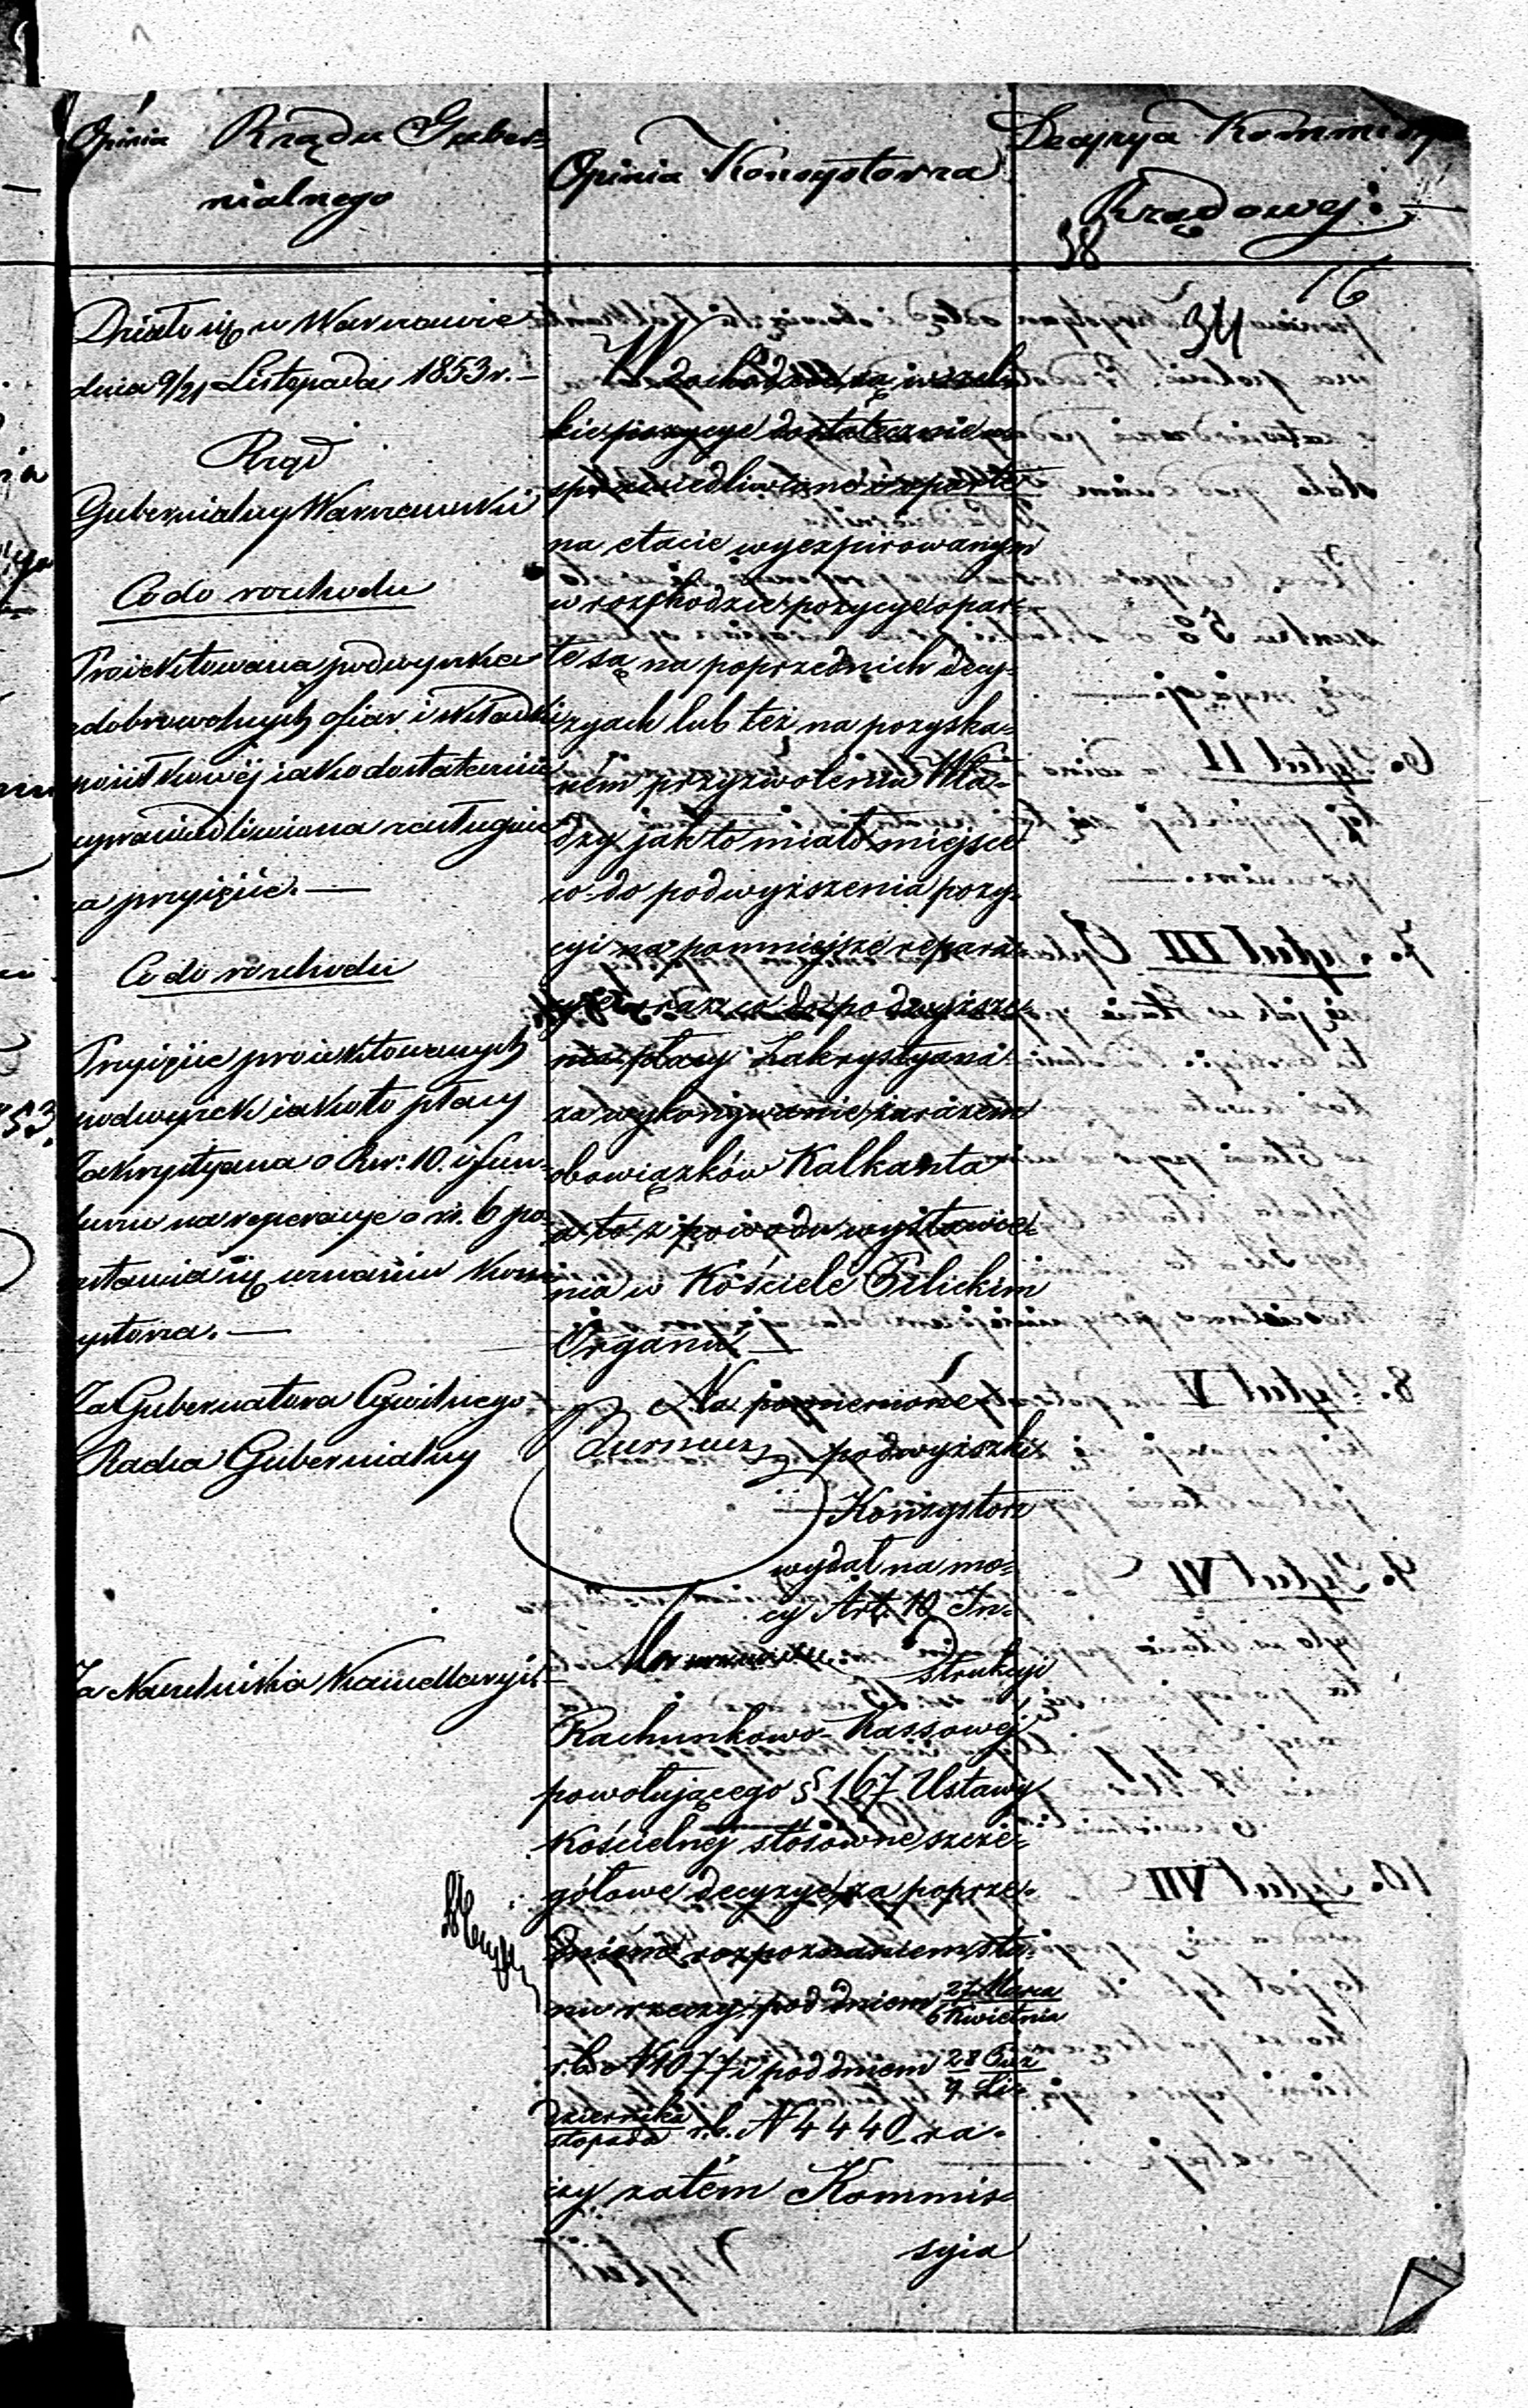 Opinia Rządu Guber=
nialnego
Działo się w Warszawie
dnia 9/21 Listopada 1853 r. —
Rząd
Gubernialny Warszawski
Co do rozchodu
Proiektowana podwyżka
z dobrowolnych ofiar i składki
jako dostatecznie
usprawiedliwiona zasługuje
na przyjęcie. —
Co do rozchodu
Przyjęcie proiektowanych
podwyżek jakoto płacy
Zakrystyana o Rsr: 10. i fun-
duszu na reperacye o rs. 6 po-
zostawia się uznaniu Kon-
systorza. —
Za Gubernatora Cywilnego
Radca Gubernialny
Za Naczelnika Kancellaryi
Opinia Konsystorza
W dochodzie są wszel=
kie pozycye dostatecznie u=
sprawiedliwione i oparte
na etacie wyexpirowanym
w rozchodzie pozycye opar=
te są na poprzednich decy=
zyach lub też na pozyska=
nem przyzwoleniu Wła=
dzy jak to miało miejsce
co do podwyższenia pozy=
cyi na pomniejsze repara=
cye oraz co do podwyższe=
nia płacy Zakrystyana
za wykonywanie zarazem
obowiązków Kalkanta
a to z powodu wystawie=
nia w Kościele Pilickim
Organu. —
Na pomienione
podwyższki
Konsystorz
wydał na mo=
cy Art. 10 In=
strukcji
Rachunkowo-Kassowej
powołującego § 167 Ustawy
Kościelnej stosowne szcze=
gółowe decyzye za poprze=
dniem rozpoznaniem sta=
nu rzeczy pod dniem 27 Marca / 6 Kwietnia
r. b. N 1077 i pod dniem 28 Paź / 9 Li=
dziernika / stopada r. b. N 4440 ra=
czy zatém Kommis=
syia
Decyzya Kommissyi
Rządowej: —
38
16
34